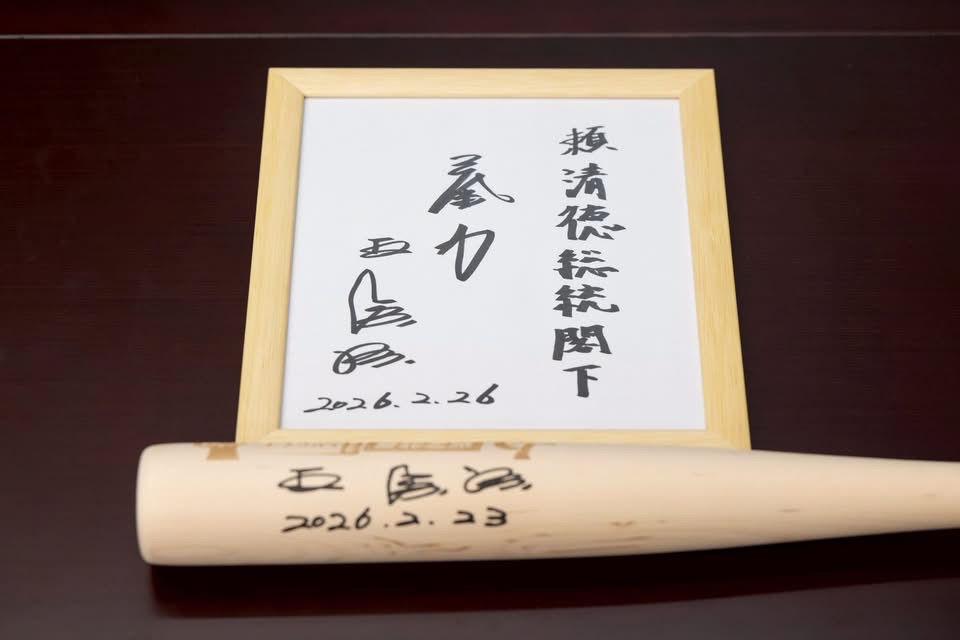 頼清徳総統閣下
氣力
王貞治
2026.2.26
王貞治
2026.2.23